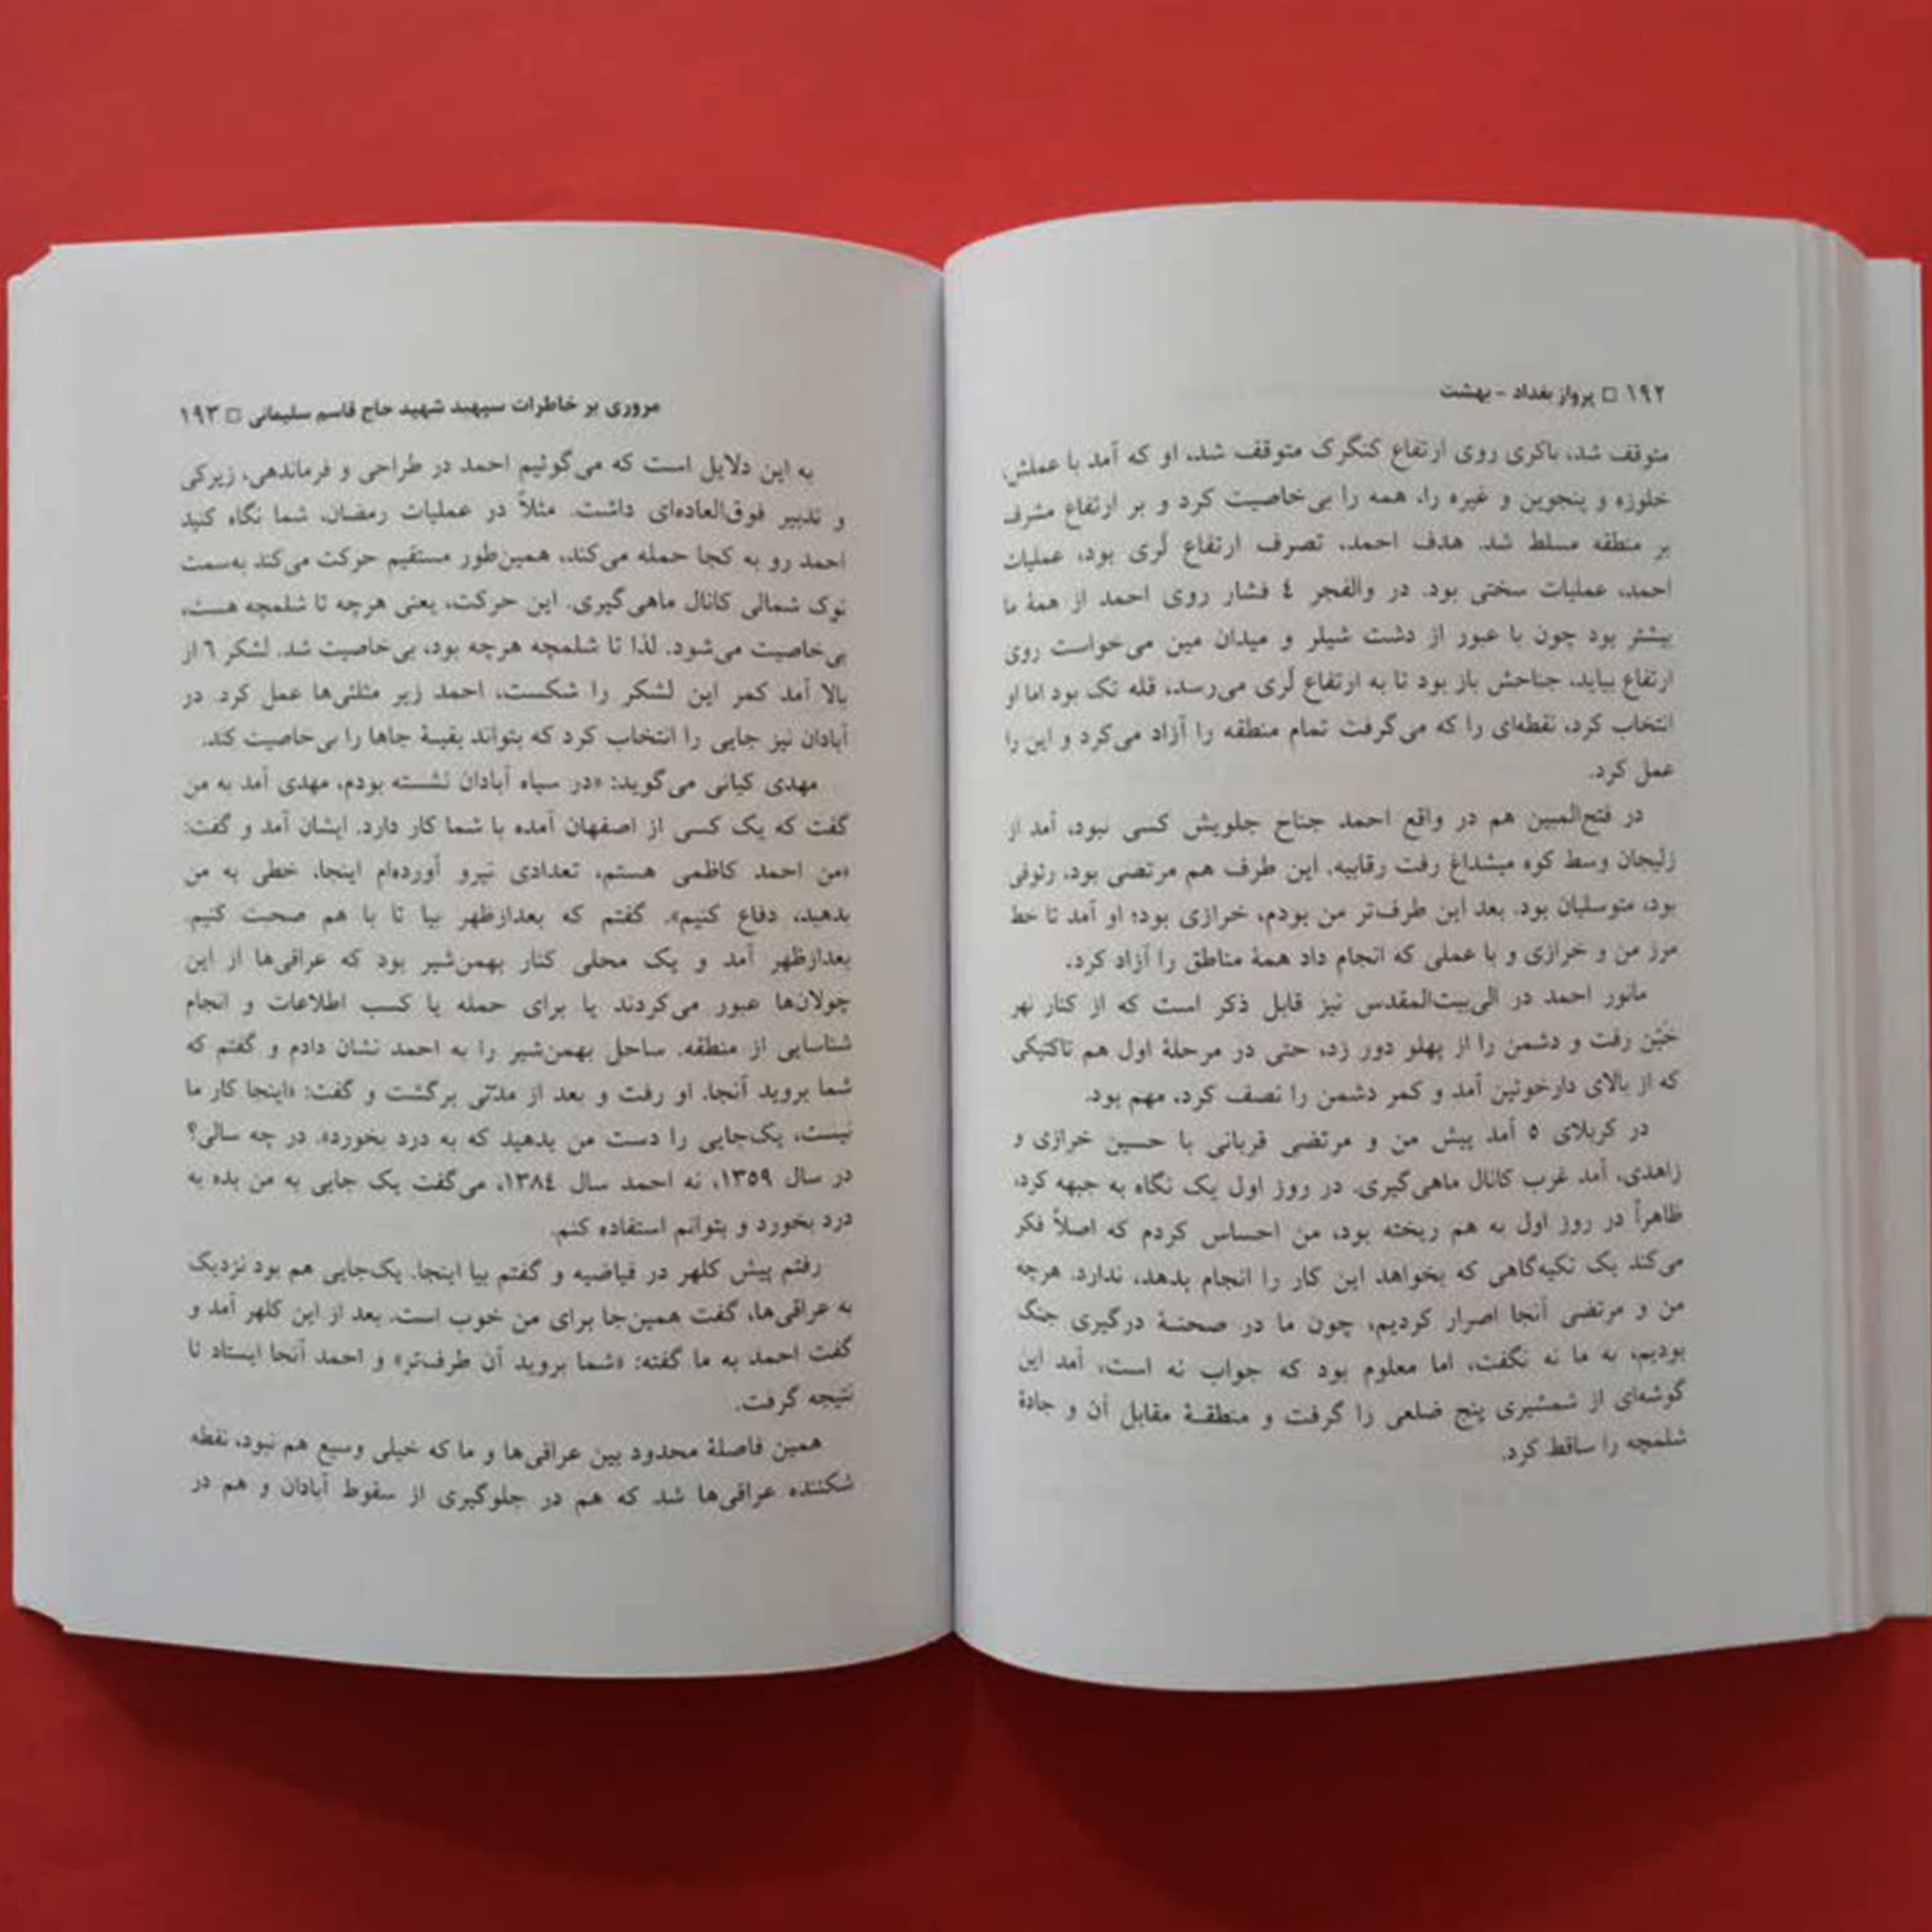 ۱۹۲ □ پرواز بغداد - بهشت
متوقف شد، باکری روی ارتفاع کنگرک متوقف شد، او که آمد با عملش،
خلوزه و پنجوین و غیره را، همه را بی‌خاصیت کرد و بر ارتفاع مشرف
بر منطقه مسلط شد. هدف احمد، تصرف ارتفاع لَری بود، عملیات
احمد، عملیات سختی بود. در والفجر ٤ فشار روی احمد از همۀ ما
بیشتر بود چون با عبور از دشت شیلر و میدان مین می‌خواست روی
ارتفاع بیاید، جناحش باز بود تا به ارتفاع لَری می‌رسد، قله تک بود اما او
انتخاب کرد، نقطه‌ای را که می‌گرفت تمام منطقه را آزاد می‌کرد و این را
عمل کرد.
در فتح‌المبین هم در واقع احمد جناح جلویش کسی نبود، آمد از
زلیجان وسط کوه میشداغ رفت رقابیه. این طرف هم مرتضی بود، رئوفی
بود، متوسلیان بود. بعد این طرف‌تر من بودم، خرازی بود؛ او آمد تا خط
مرز من و خرازی و با عملی که انجام داد همۀ مناطق را آزاد کرد.
مانور احمد در الی‌بیت‌المقدس نیز قابل ذکر است که از کنار نهر
خَیّن رفت و دشمن را از پهلو دور زد، حتی در مرحلۀ اول هم تاکتیکی
که از بالای دارخوئین آمد و کمر دشمن را نصف کرد، مهم بود.
در کربلای ٥ آمد پیش من و مرتضی قربانی با حسین خرازی و
زاهدی، آمد غرب کانال ماهی‌گیری. در روز اول یک نگاه به جبهه کرد،
ظاهراً در روز اول به هم ریخته بود، من احساس کردم که اصلاً فکر
می‌کند یک تکیه‌گاهی که بخواهد این کار را انجام بدهد، ندارد. هرچه
من و مرتضی آنجا اصرار کردیم، چون ما در صحنۀ درگیری جنگ
بودیم، به ما نه نگفت، اما معلوم بود که جواب نه است، آمد این
گوشه‌ای از شمشیری پنج ضلعی را گرفت و منطقۀ مقابل آن و جادۀ
شلمچه را ساقط کرد.
مروری بر خاطرات سپهبد شهید حاج قاسم سلیمانی □ ۱۹۳
به این دلایل است که می‌گوئیم احمد در طراحی و فرماندهی، زیرکی
و تدبیر فوق‌العاده‌ای داشت. مثلاً در عملیات رمضان، شما نگاه کنید
احمد رو به کجا حمله می‌کند، همین‌طور مستقیم حرکت می‌کند به‌سمت
نوک شمالی کانال ماهی‌گیری. این حرکت، یعنی هرچه تا شلمچه هست،
بی‌خاصیت می‌شود. لذا تا شلمچه هرچه بود، بی‌خاصیت شد. لشکر ٦ از
بالا آمد کمر این لشکر را شکست، احمد زیر مثلثی‌ها عمل کرد. در
آبادان نیز جایی را انتخاب کرد که بتواند بقیۀ جاها را بی‌خاصیت کند.
مهدی کیانی می‌گوید: «در سپاه آبادان نشسته بودم، مهدی آمد به من
گفت که یک کسی از اصفهان آمده با شما کار دارد. ایشان آمد و گفت:
«من احمد کاظمی هستم، تعدادی نیرو آورده‌ام اینجا، خطی به من
بدهید، دفاع کنیم». گفتم که بعدازظهر بیا تا با هم صحبت کنیم.
بعدازظهر آمد و یک محلی کنار بهمن‌شیر بود که عراقی‌ها از این
چولان‌ها عبور می‌کردند یا برای حمله یا کسب اطلاعات و انجام
شناسایی از منطقه. ساحل بهمن‌شیر را به احمد نشان دادم و گفتم که
شما بروید آنجا. او رفت و بعد از مدتی برگشت و گفت: «اینجا کار ما
نیست، یک‌جایی را دست من بدهید که به درد بخورد». در چه سالی؟
در سال ۱۳٥۹، نه احمد سال ۱۳۸٤، می‌گفت یک جایی به من بده به
درد بخورد و بتوانم استفاده کنم.
رفتم پیش کلهر در فیاضیه و گفتم بیا اینجا. یک‌جایی هم بود نزدیک
به عراقی‌ها، گفت همین‌جا برای من خوب است. بعد از این کلهر آمد و
گفت احمد به ما گفته: «شما بروید آن طرف‌تر» و احمد آنجا ایستاد تا
نتیجه گرفت.
همین فاصلۀ محدود بین عراقی‌ها و ما که خیلی وسیع هم نبود، نقطه
شکننده عراقی‌ها شد که هم در جلوگیری از سقوط آبادان و هم در